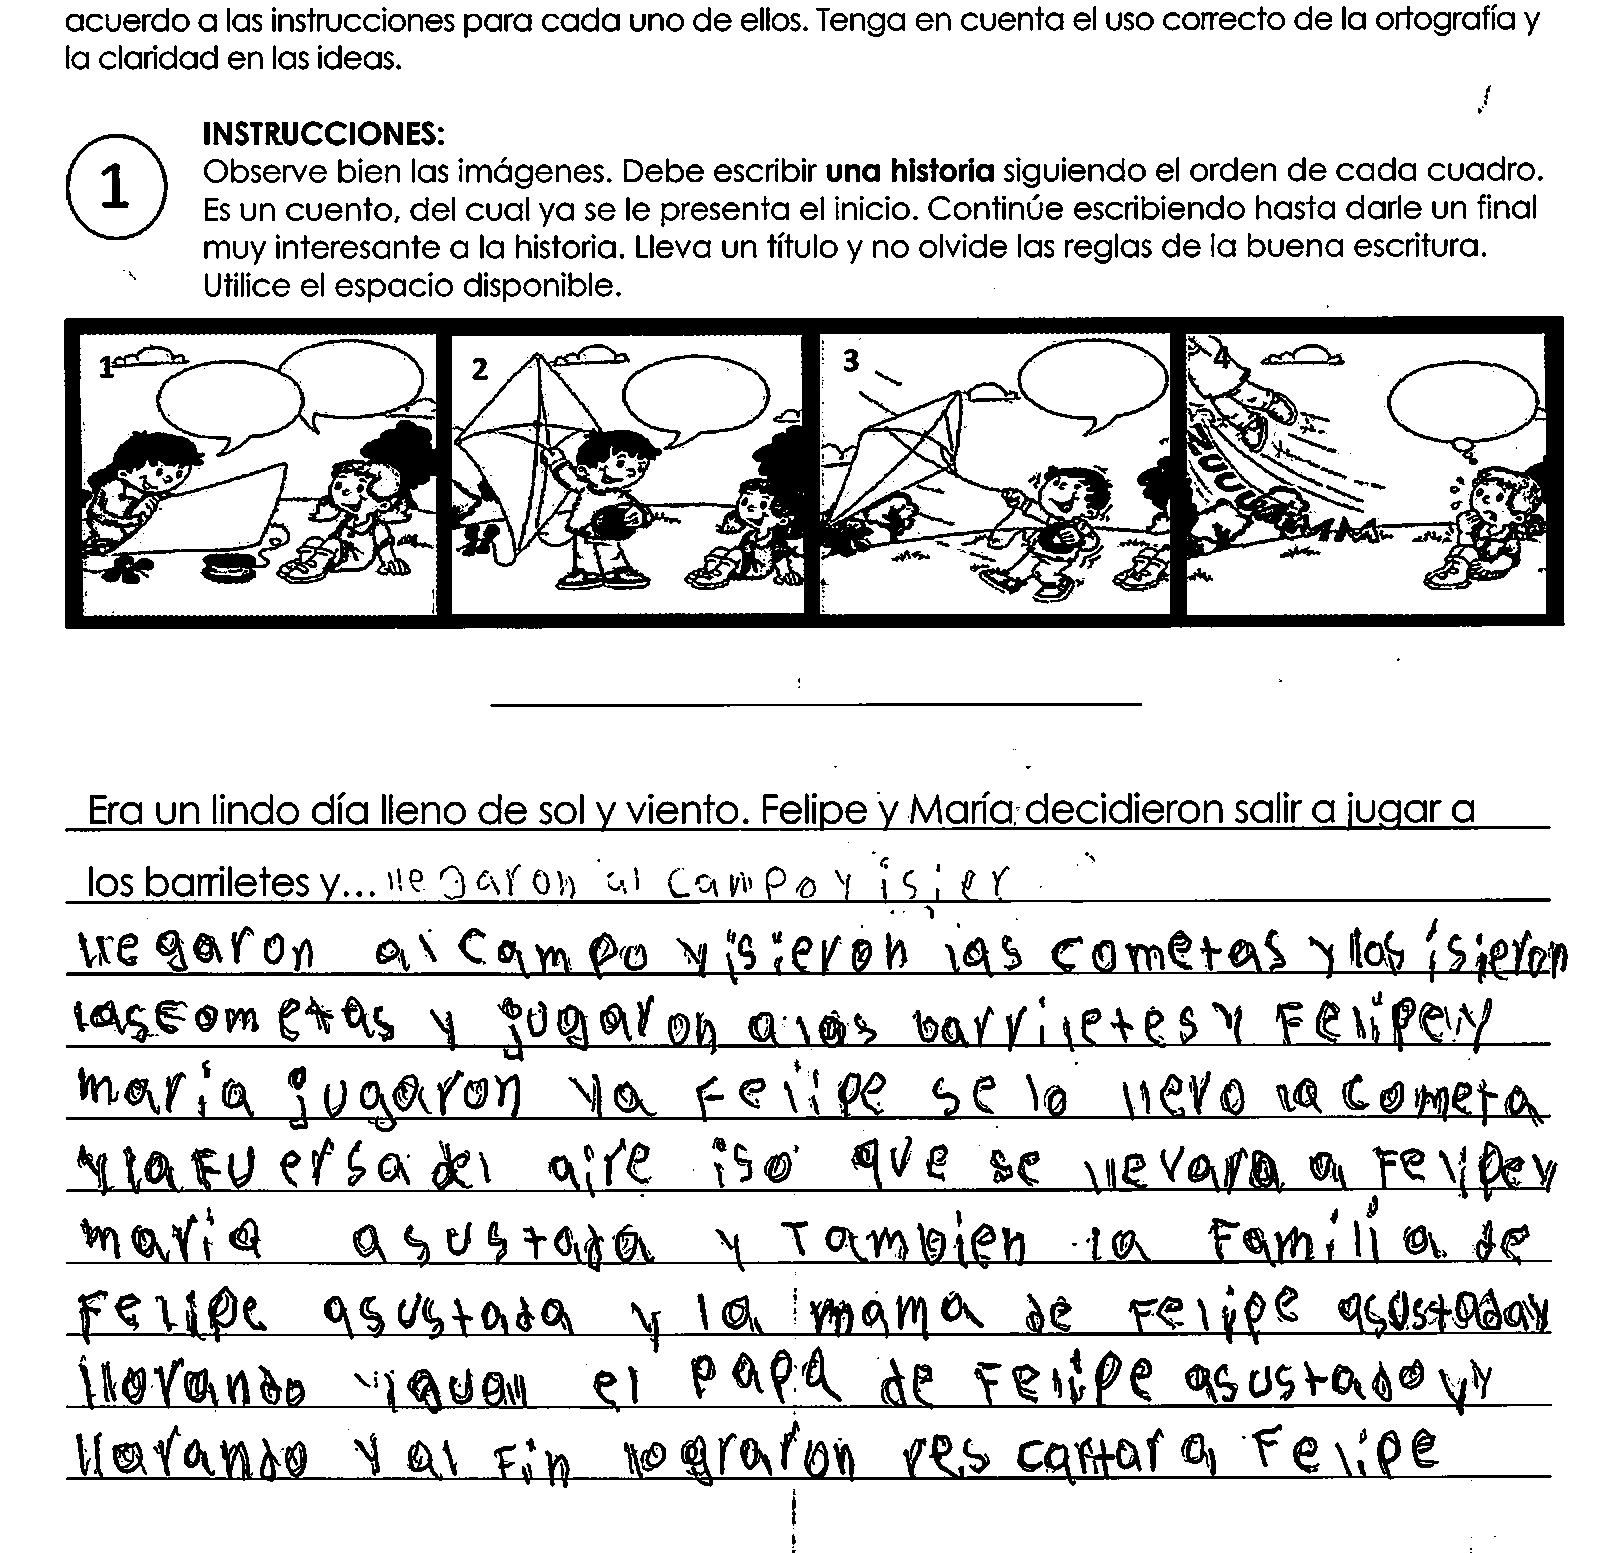 acuerdo a las instrucciones para cada uno de ellos. Tenga en cuenta el uso correcto de la ortografía y
la claridad en las ideas.
1
INSTRUCCIONES:
Observe bien las imágenes. Debe escribir una historia siguiendo el orden de cada cuadro.
Es un cuento, del cual ya se le presenta el inicio. Continúe escribiendo hasta darle un final
muy interesante a la historia. Lleva un título y no olvide las reglas de la buena escritura.
Utilice el espacio disponible.
1 2 3 4
ZUUUUMMM
Era un lindo día lleno de sol y viento. Felipe y María decidieron salir a jugar a
los barriletes y... llegaron al campo y isier
llegaron al campo y isieron las cometas y los isieron
las cometas y jugaron a los barriletes y Felipe y
maria jugaron y a Felipe se lo llevo la cometa
y la fuersa del aire iso que se llevara a Felipe y
maria asustada y Tambien la Familia de
Felipe asustada y la mama de Felipe asustada y
llorando igual el papa de Felipe asustado y
llorando y al fin lograron rescatar a Felipe